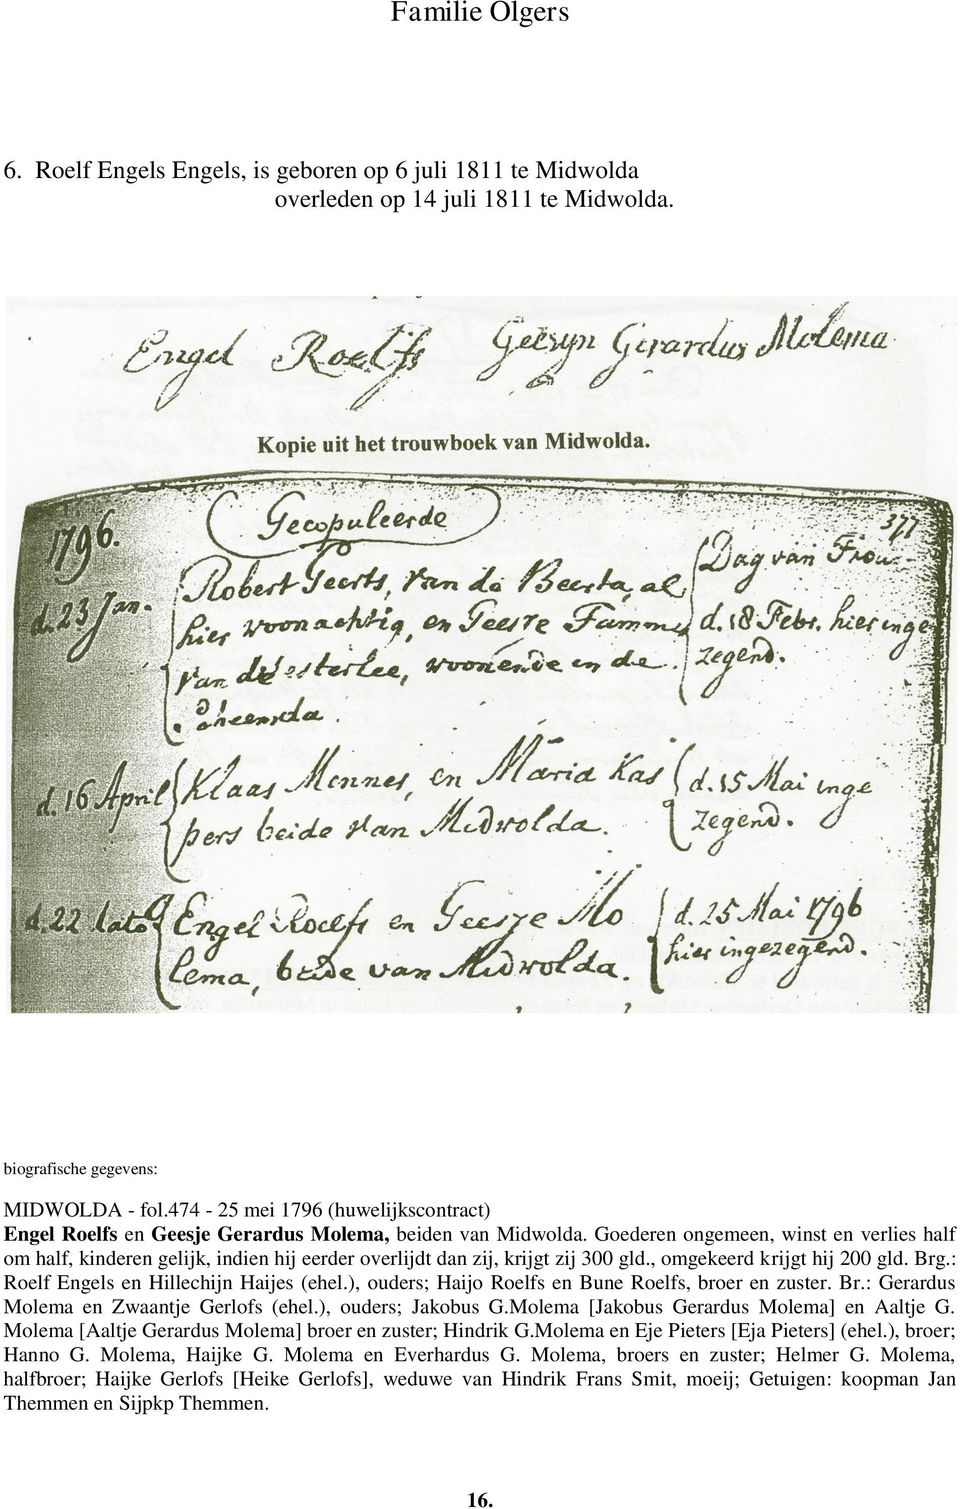 Familie Olgers
6. Roelf Engels Engels, is geboren op 6 juli 1811 te Midwolda
overleden op 14 juli 1811 te Midwolda.
Engel Roelfs Geesyn Gerardus Molema
Kopie uit het trouwboek van Midwolda.
1796. Gecopuleerde 377
d. 23 Jan. Robert Geerts, van de Beerta, al Dag van Trou-
hier woonachtig, en Geeste Fammes d. 18 Febr. hier inge
van de Oesterlee, woonende in de zegend.
Scheemda.
d. 16 April Klaas Mennes, en Maria Kas d. 15 Mai inge
pers beide van Midwolda. zegend.
d. 22 dato Engel Roelfs en Geesje Mo d. 25 Mai 1796
lema, beide van Midwolda. hier ingezegend.
biografische gegevens:
MIDWOLDA - fol.474 - 25 mei 1796 (huwelijkscontract)
Engel Roelfs en Geesje Gerardus Molema, beiden van Midwolda. Goederen ongemeen, winst en verlies half
om half, kinderen gelijk, indien hij eerder overlijdt dan zij, krijgt zij 300 gld., omgekeerd krijgt hij 200 gld. Brg.:
Roelf Engels en Hillechijn Haijes (ehel.), ouders; Haijo Roelfs en Bune Roelfs, broer en zuster. Br.: Gerardus
Molema en Zwaantje Gerlofs (ehel.), ouders; Jakobus G.Molema [Jakobus Gerardus Molema] en Aaltje G.
Molema [Aaltje Gerardus Molema] broer en zuster; Hindrik G.Molema en Eje Pieters [Eja Pieters] (ehel.), broer;
Hanno G. Molema, Haijke G. Molema en Everhardus G. Molema, broers en zuster; Helmer G. Molema,
halfbroer; Haijke Gerlofs [Heike Gerlofs], weduwe van Hindrik Frans Smit, moeij; Getuigen: koopman Jan
Themmen en Sijpkp Themmen.
16.